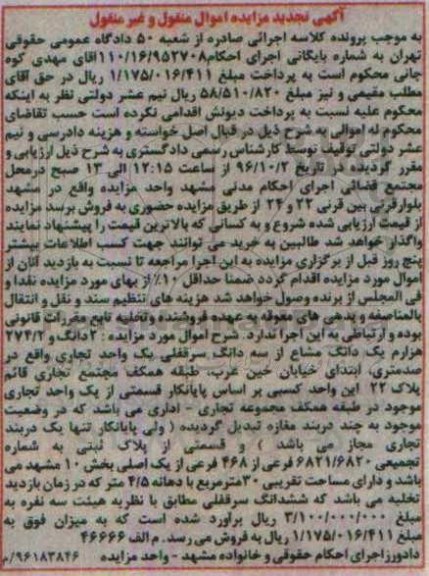 آگهی تجدید مزایده اموال منقول و غیر منقول
به موجب پرونده کلاسه اجرائی صادره از شعبه ۵۰ دادگاه عمومی حقوقی
تهران به شماره بایگانی اجرای احکام۱۱۰/۱۶/۹۵۲۷۰۸آقای مهدی کوه
جانی محکوم است به پرداخت مبلغ ۱/۱۷۵/۰۱۶/۴۱۱ ریال در حق آقای
مطلب مقیمی و نیز مبلغ ۵۸/۵۱۰/۸۲۰ ریال نیم عشر دولتی نظر به اینکه
محکوم علیه نسبت به پرداخت دیونش اقدامی نکرده است حسب تقاضای
محکوم له اموالی به شرح ذیل در قبال اصل خواسته و هزینه دادرسی و نیم
عشر دولتی توقیف توسط کارشناس رسمی دادگستری به شرح ذیل ارزیابی و
مقرر گردیده در تاریخ ۹۶/۱۰/۲ از ساعت ۱۲:۱۵ الی ۱۳ صبح درمحل
مجتمع قضائی اجرای احکام مدنی مشهد واحد مزایده واقع در مشهد
بلوارقرنی بین قرنی ۲۲ و ۲۴ از طریق مزایده حضوری به فروش برسد مزایده
از قیمت ارزیابی شده شروع و به کسانی که بالاترین قیمت را پیشنهاد نمایند
واگذار خواهد شد طالبین به خرید می توانند جهت کسب اطلاعات بیشتر
پنج روز قبل از برگزاری مزایده به این اجرا مراجعه تا نسبت به بازدید آنان از
اموال مورد مزایده اقدام گردد ضمنا حداقل ۱۰٪ از بهای مورد مزایده نقدا و
فی المجلس از برنده وصول خواهد شد هزینه های تنظیم سند و نقل و انتقال
بالمناصفه و بدهی های معوقه به عهده فروشنده وتخلیه تابع مقررات قانونی
بوده و ارتباطی به این اجرا ندارد. شرح اموال مورد مزایده : ۲دانگ و ۲۷۴/۲
هزارم یک دانگ مشاع از سه دانگ سرقفلی یک واحد تجاری واقع در
صدمتری، ابتدای خیابان خین عرب، طبقه همکف مجتمع تجاری قائم
پلاک ۲۲ این واحد کسبی بر اساس پایانکار قسمتی از یک واحد تجاری
موجود در طبقه همکف مجموعه تجاری - اداری می باشد که در وضعیت
موجود به چند دربند مغازه تبدیل گردیده ( ولی پایانکار تنها یک دربند
تجاری مجاز می باشد ) و قسمتی از پلاک ثبتی به شماره
تجمیعی ۶۸۲۱/۶۸۲۰ فرعی از ۴۶۸ فرعی از یک اصلی بخش ۱۰ مشهد می
باشد و دارای مساحت تقریبی ۳۰مترمربع با دهانه ۴/۵ متر که در زمان بازدید
تخلیه می باشد که ششدانگ سرقفلی مطابق با نظریه هیئت سه نفره به
مبلغ ۳/۱۰۰/۰۰۰/۰۰۰ ریال برآورد شده است که به میزان فوق به
مبلغ ۱/۱۷۵/۰۱۶/۴۱۱ ریال به فروش می رسد. م الف ۴۶۶۶۶
دادورزاجرای احکام حقوقی و خانواده مشهد - واحد مزایده ۹۶۱۸۳۸۴۶/م